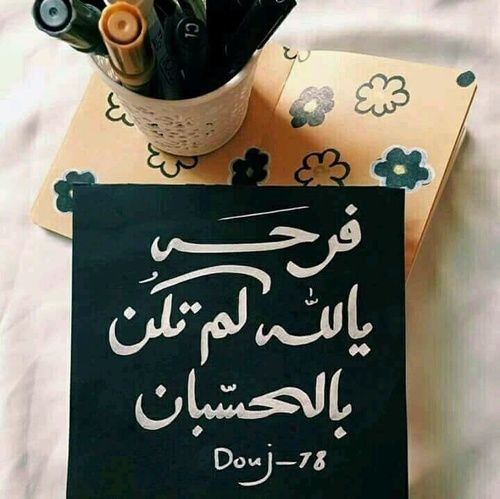 فرحَه
يالله لم تكُن
بالحسّبان
Douj-78